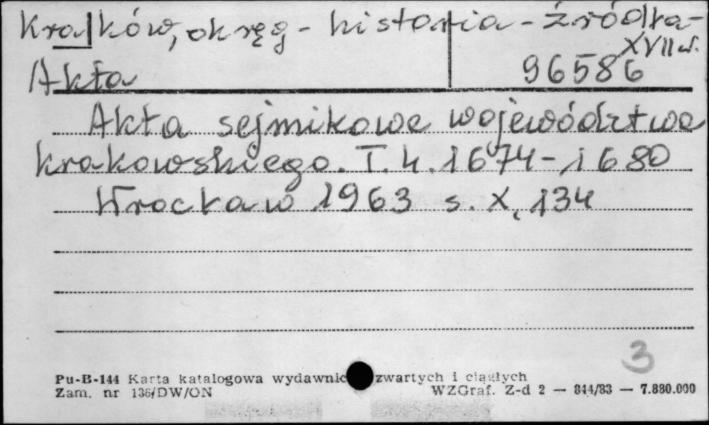 Kraków, okręg - historia - źródła -
XVII w.
Akta 96586
Akta sejmikowe województwa
krakowskiego. T. 4. 1674-1680
Wrocław 1963 s. X, 134
3
Pu-B-144 Karta katalogowa wydawnic zwartych i ciągłych
Zam. nr 136/DW/ON WZGraf. Z-d 2 — 844/83 — 7.880.000